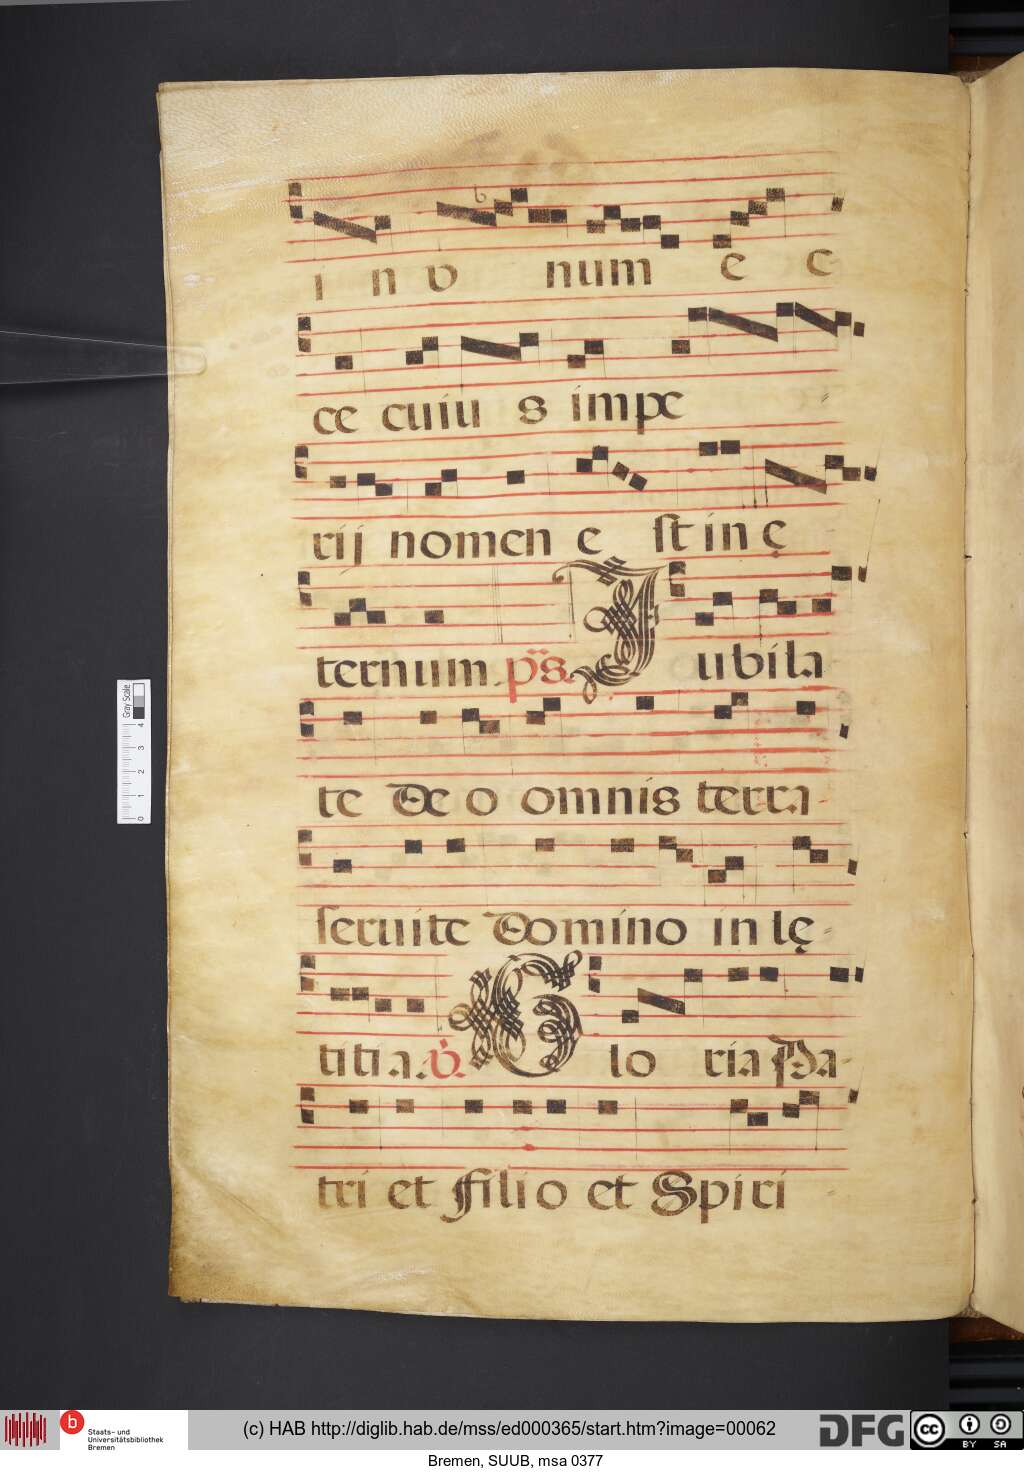 i n o num e c
ce cuiu s impe
rij nomen e st in ę
ternum p̈s. Jubila
te Deo omnis terra
seruite Domino in lę
titia. v. Glo ria Pa
tri et Filio et Spiri
Gray Scale
0 1 2 3 4
b Staats- und
Universitätsbibliothek
Bremen
(c) HAB http://diglib.hab.de/mss/ed000365/start.htm?image=00062
DFG
cc BY SA
Bremen, SUUB, msa 0377